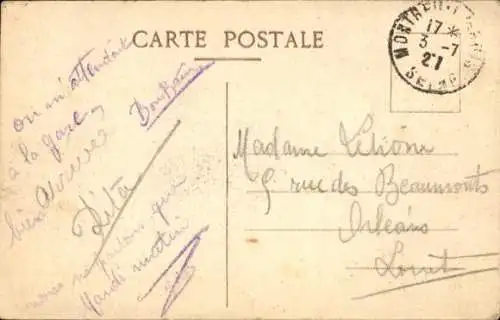 CARTE POSTALE
MONTREUIL
17 *
3 - 7
21
SEINE
on m'attendait
à la gare
bien arrivée
Rita
nous ne partons que
Mardi matin
Madame
5 rue des Beaumonts
Orléans
Loiret